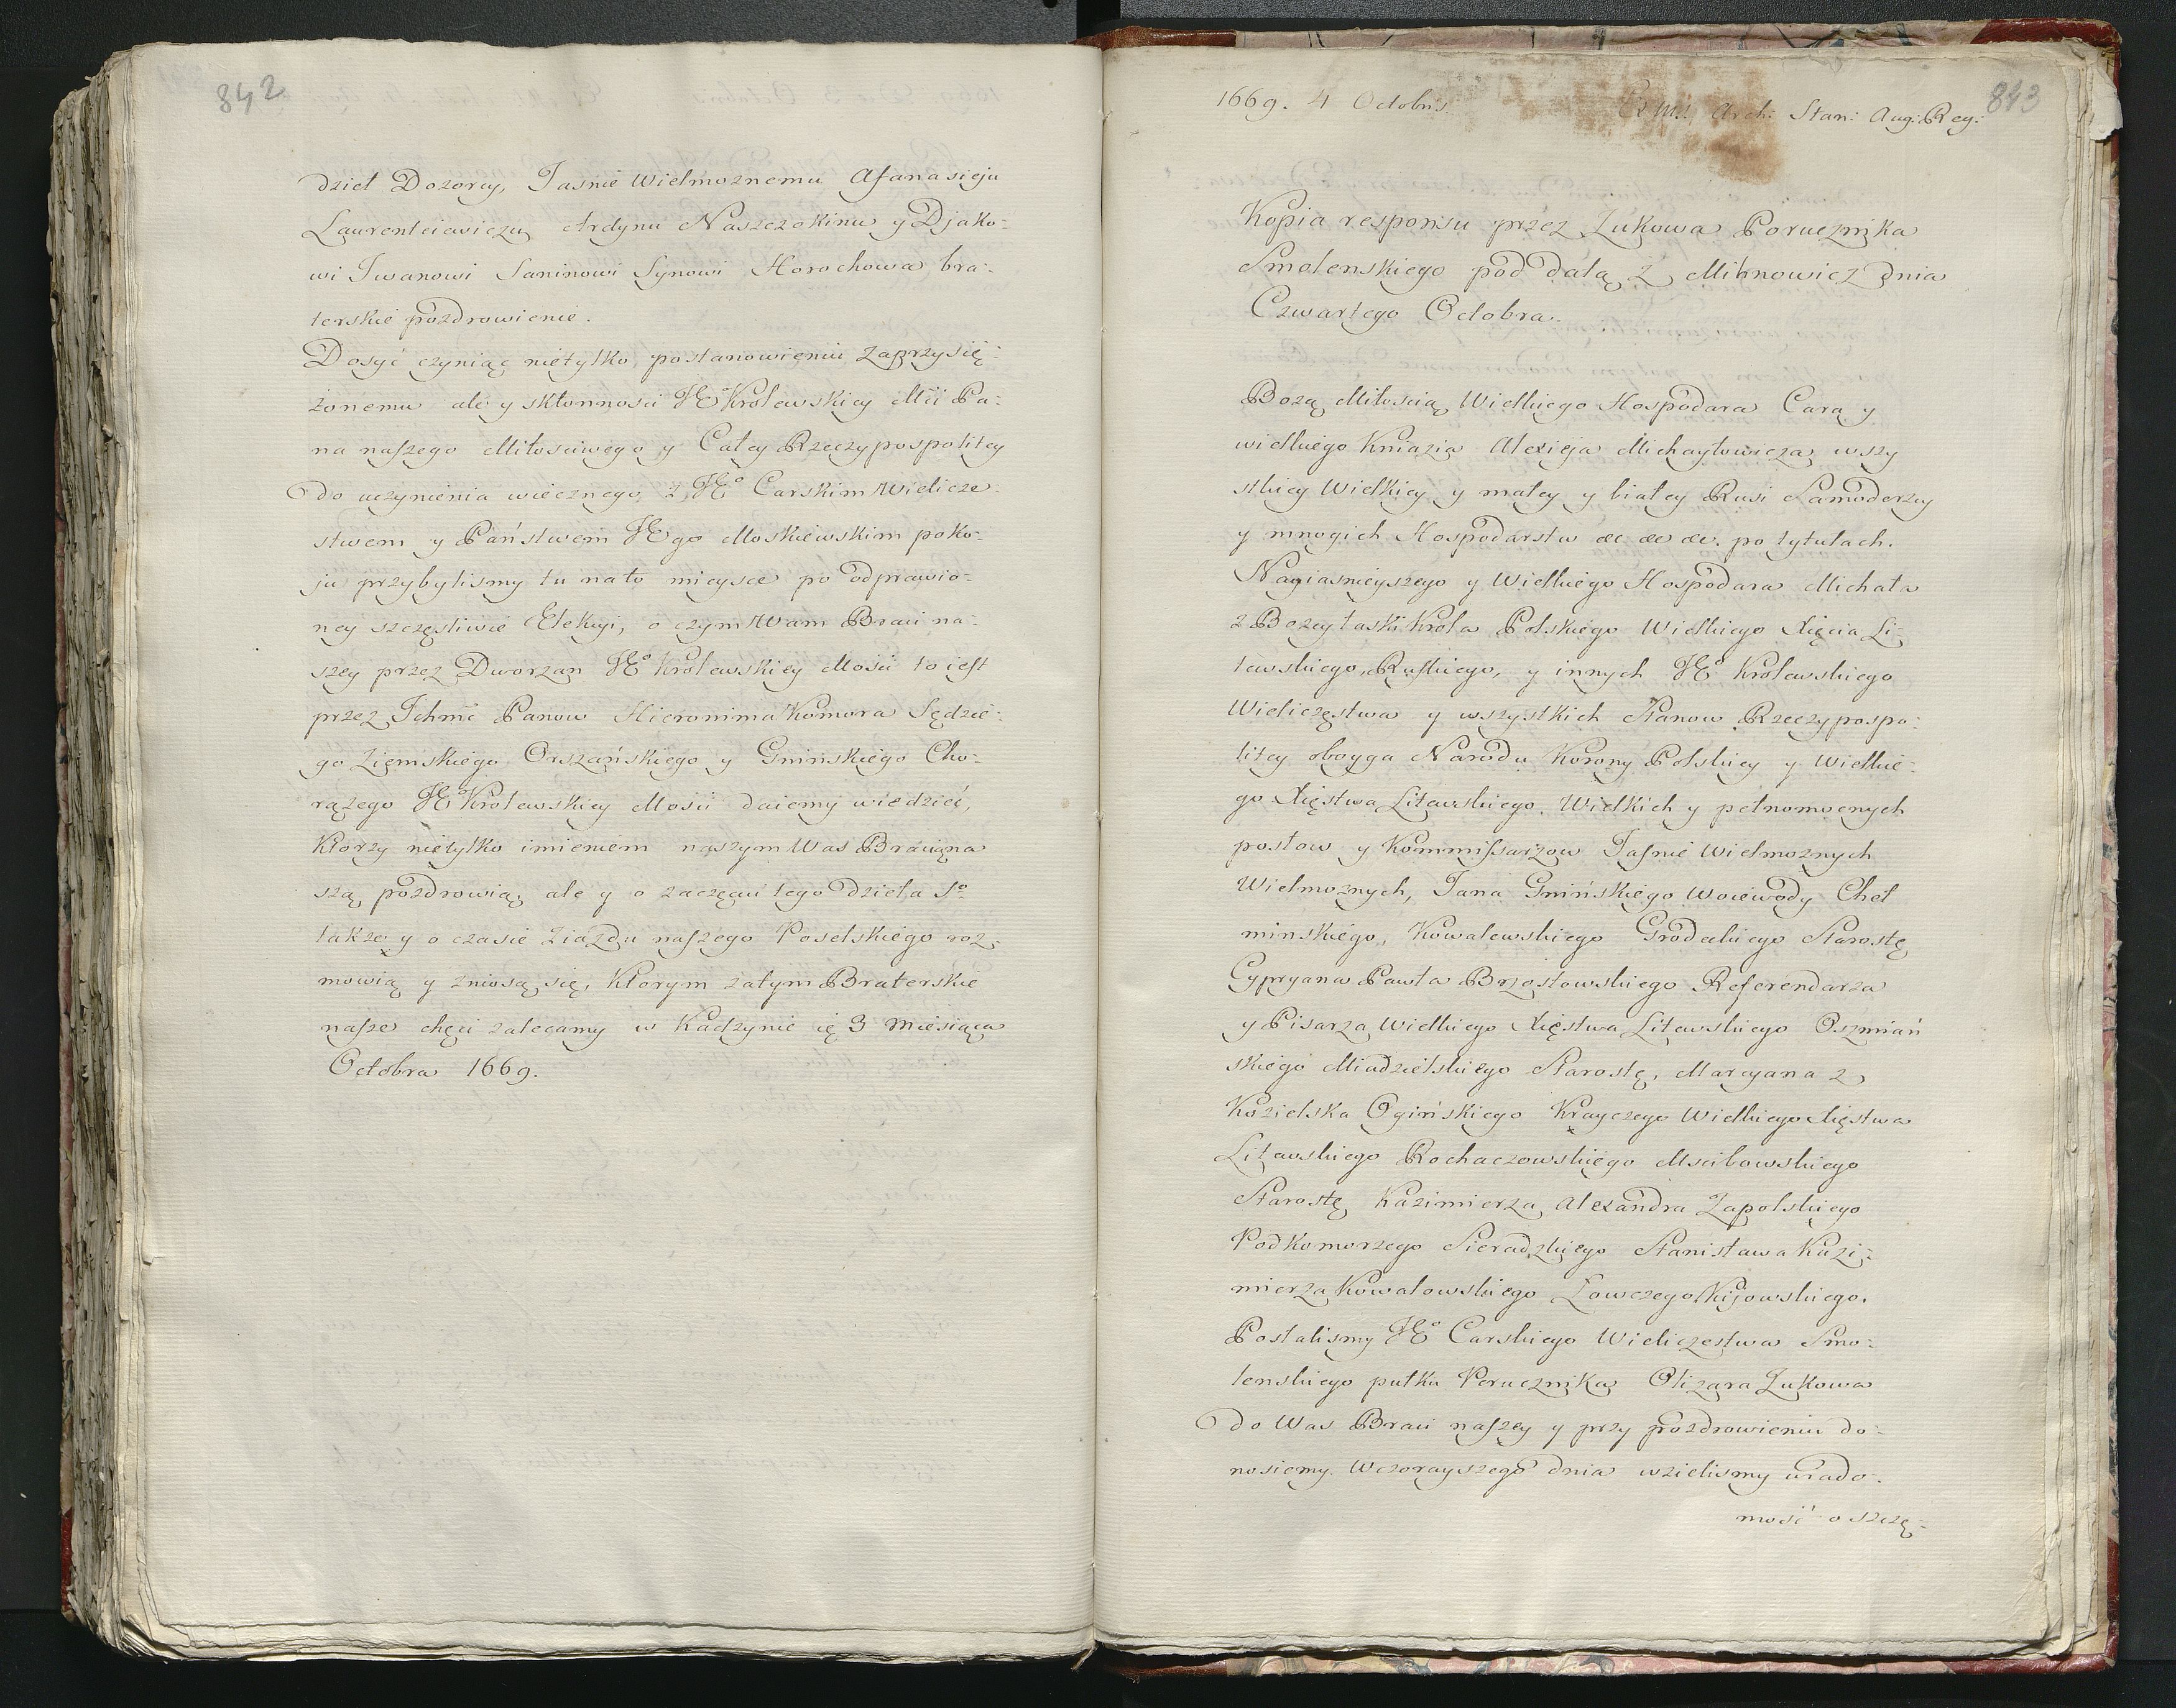 842
dzieł Dozorcy, Jasnie Wielmoznemu Afanasieju
Laurenteiewiczu Ardynu Naszczokinu y Djako-
wi Iwanowi Saninowi Synowi Horochowa bra-
terskie pozdrowienie.
Dosyć czyniąc nietylko postanowieniu zaprzysię-
żonemu ale y skłonności JEº Krolewskiey Mści Pa-
na naszego Miłosciwego y Całey Rzeczypospolitey
do uczynienia wiecznego z JEº Carskim Wielicze-
stwem y Państwem JEgo Moskiewskim poko-
ju przybylismy tu na to mieysce po odprawio-
ney szczęsliwie Elekcyi, o czym Wam Braci na-
szey przez Dworzan JEº Krolewskiey Mości to jest
przez Ichmć Panow Hieronima Komora Sędzie-
go Ziemskiego Orszańskiego y Gnińskiego Cho-
rążego JEº Krolewskiey Mości daiemy wiedzieć,
Ktorzy nietylko imieniem naszym Was Bracią na-
szą pozdrowią, ale y o zaczęciu tego dzieła Sº
także y o czasie Ziazdu naszego Poselskiego roz-
mowią y zniosą się, Ktorym zatym Braterskie
nasze chęci zalecamy w Kadzynie ię 3 Miesiąca
Octobra 1669.
1669. 4 Octobris.
Ex M.S. Arch: Stan: Aug: Reg:
843
Kopia responsu przez Zukowa Porucznika
Smolenskiego pod datą z Mihnowicz dnia
Czwartego Octobra.
Bozą Miłoscią Wielkiego Hospodara Cara y
wielkiego Kniazia Alexieja Michayłowicza wszy
stkiey Wielkiey y małey y białey Rusi Samoderzcy
y mnogich Hospodarstw &c &c &c. po tytułach.
Nayiasnieyszego y Wielkiego Hospodara Michała
z Bozey łaski Krola Polskiego Wielkiego Xięcia Li-
tewskiego, Ruskiego, y innych JEº Krolewskiego
Wieliczęstwa y wszystkich Stanow Rzeczypospo-
litey oboyga Narodu Korony Polskiey y Wielkie-
go Xięstwa Litewskiego. Wielkich y pełnomocnych
posłow y Kommissarzow Jasnie Wielmoznych
Wielmoznych, Jana Gnińskiego Woiewody Cheł
minskiego, Kowalewskiego Grodeckiego Starostę
Cypryana Pawła Brzostowskiego Referendarza
y Pisarza Wielkiego Xięstwa Litewskiego Oszmiań
skiego Miadzielskiego Starostę, Marcyana z
Kozielska Ogińskiego Krayczego Wielkiego Xięstwa
Litewskiego Rochaczowskiego Mscibowskiego
Starostę Kazimierza Alexandra Zapolskiego
Podkomorzego Sieradzkiego Stanisława Kazi-
mierza Kowalowskiego Łowczego Kijowskiego.
Posłalismy JEº Carskiego Wieliczestwa Smo-
lenskiego pułku Porucznika Olizara Zukowa
do Was Braci naszey y przy pozdrowieniu do-
nosiemy. Wczorayszego dnia wzielismy wiado-
mość o szczę-